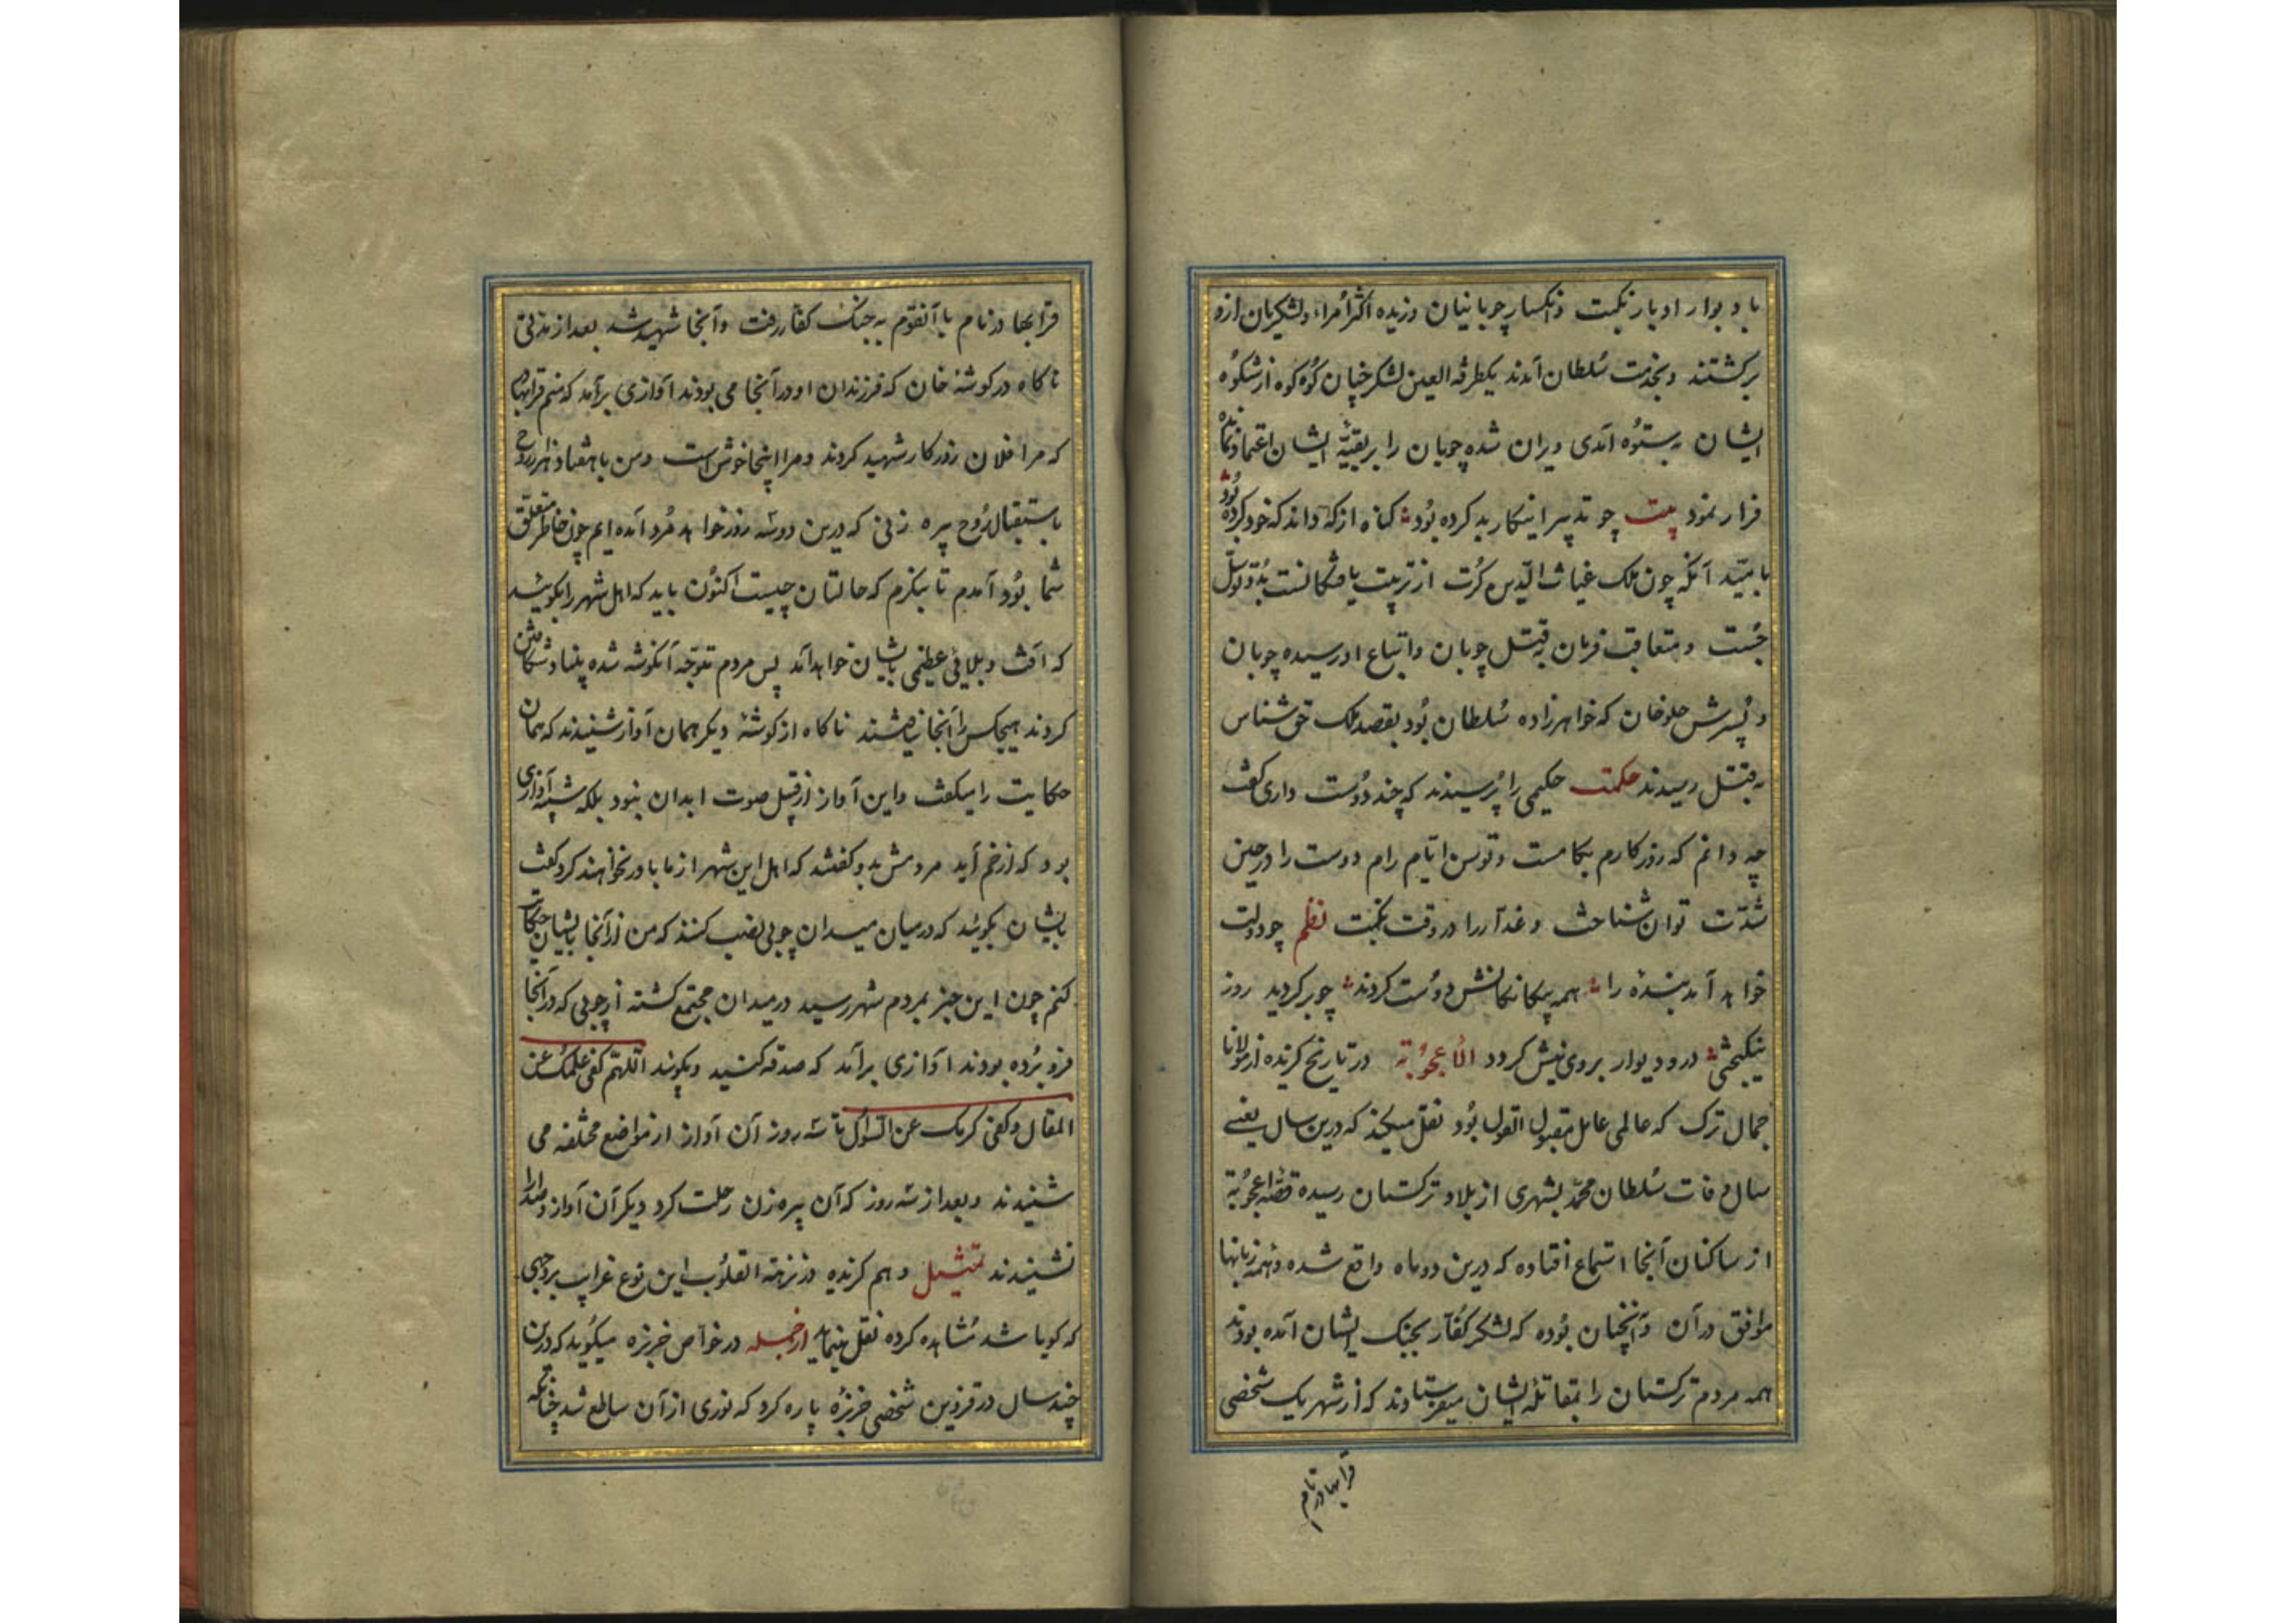 باد بوار ادبار نکبت و انکسار چوپانیان وزیده اکثر امراء و لشکریان ازو
برکشتند و بخدمت سلطان آمدند یکطرفة العین لشکر خپان کوه کوه از شکوه
ایشان بستوه آمدی ویران شده چوبان را بر بقیّهٔ ایشان اعتماد نمانده
فرار نمود بیت چو تدبیر اینکار بد کرده بود کناه از که داند که خود کرده بود
بامید آنکه چون ملک غیاث الدّین کرت از تربیت یافتکانست بدو توسّل
جست و متعاقب فرمان بقتل چوبان و اتباع او رسیده چوبان
و پسرش جلوخان که خواهرزاده سلطان بود بقصد ملک حق شناس
بقتل رسیدند حکمت حکیمی را پرسیدند که چند دوست داری کفت
چه دانم که روزکارم بکامست و توسن ایّام رام دوست را در حین
شدّت توان شناخت و غدّار را در وقت نکبت نظم چو دولت
خواهد آمد بنده را همه بیکانکانش دوست کردند چو برکردید روز
نیکبختی در و دیوار بروی نیش کردد الأعجوبة در تاریخ کزیده از مولانا
جمال ترک که عالمی عامل مقبول القول بود نقل میکند که درین سال یعنی
سال وفات سلطان محمّد بشهری از بلاد ترکستان رسیده قصّهٔ اعجوبة
از ساکنان آنجا استماع افتاده که درین دو ماه واقع شده و همه زبانها
موافق در آن و آنچنان بوده که لشکر کفّار بجنک ایشان آمده بودند
همه مردم ترکستان را بمقاتلهٔ ایشان میفرستادند که از شهر یک شخصی
قرابهادر نام
قرابهادر نام با آنقوم به جنک کفّار رفت و آنجا شهید شد بعد از مدتی
ناکاه در کوشهٔ خان که فرزندان او در آنجا می بودند آوازی برآمد که منم قرابهادر
که مرا فلان روز کفار شهید کردند و مرا اینجا خوش است و من با هفتاد هزار روح
باستقبال روح پیره زنی که درین دو سه روز خواهد مرد آمده ایم چون خاطر متعلق
شما بود آمدم تا بنکرم که حالتان چیست اکنون باید که اهل شهر را بکوئید
که آفت و بلائی عظیمی بایشان خواهد آمد پس مردم متوجّه آنکوشه شده بنیاد شکافتن
کردند هیچکس را آنجا نیافتند ناکاه از کوشهٔ دیکر همان آواز شنیدند که همان
حکایت را میکفت و این آواز از قبل صوت ابدان نبود بلکه شبیه آوازی
بود که از خم آید مردمش بدو کفتند که اهل این شهر از ما باور نخواهند کرد کفت
بایشان بکوئید که در میان میدان چوبی نصب کنند که من از آنجا بایشان حکایت
کنم چون این خبر بمردم شهر رسید در میدان مجتمع کشته از چوبی که در آنجا
فرو برده بودند آوازی برآمد که صدقه کنید و بکوئید اللّهمّ کفی علمک عن
المقال و کفی کرمک عن السّؤال تا سه روز آن آواز از مواضع مختلفه می
شنیدند و بعد از سه روز که آن پیره زن رحلت کرد دیکر آن آواز و صدا را
نشنیدند تمثیل و هم کزیده در نزهة القلوب این نوع غرایب بر وجهی
که کویا شد مشاهده کرده نقل مینماید ازجمله در خواص خربزه میکوید که درین
چند سال در قزوین شخصی خربزه پاره کرد که نوری از آن ساطع شد چنانکه